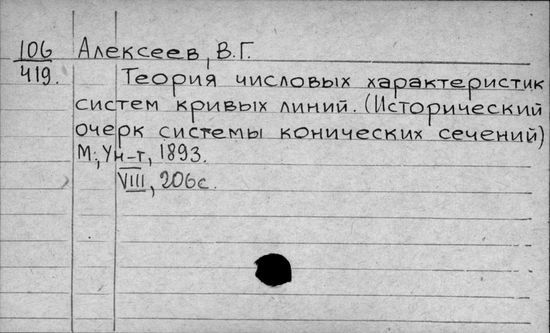 106 Алексеев, В.Г.
419. Теория числовых характеристик
систем кривых линий. (Исторический
очерк системы конических сечений)
М., Ун-т, 1893.
VIII, 206с.